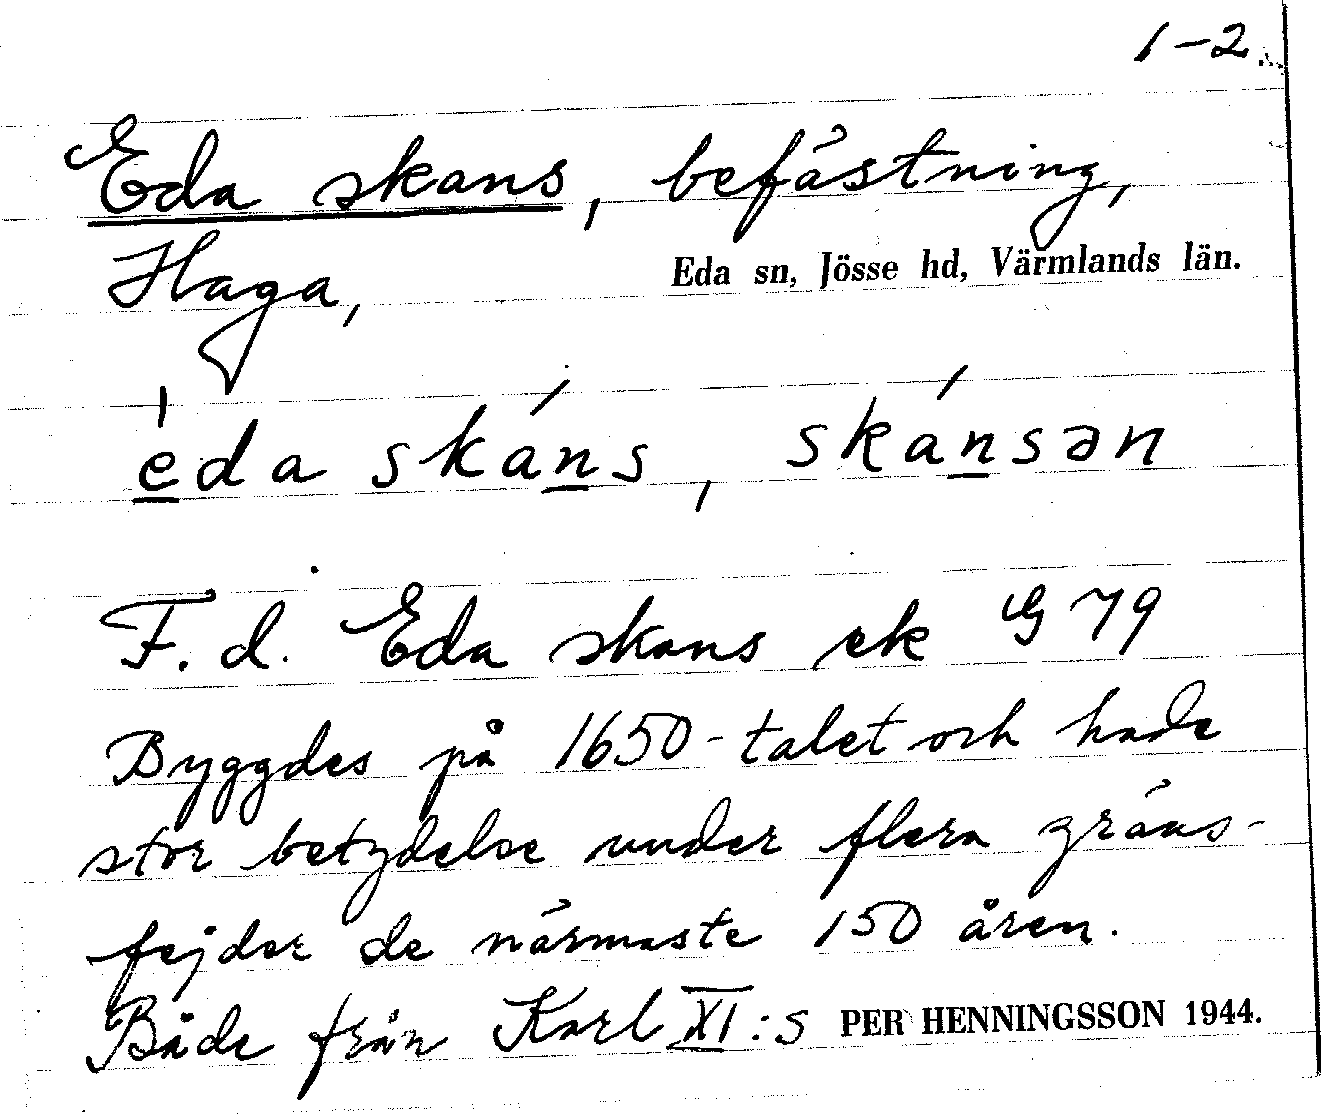 1-2.
Eda skans, befästning,
Haga,
Eda sn, Jösse hd, Värmlands län.
eda skáns, skánsən
F.d. Eda skans ek G 79
Byggdes på 1650-talet och hade
stor betydelse under flera gräns-
fejder de närmaste 150 åren.
Både från Karl XI:s
PER HENNINGSSON 1944.